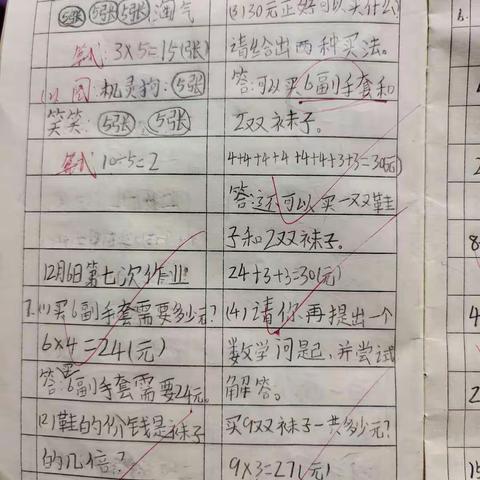 5张 5张 5张 淘气
算式 3×5=15(张)
(2) 图:机灵狗: 5张
笑笑: 5张 5张
算式 10÷5=2
12月6日第七次作业
7.(1)买6副手套需要多少元?
6×4=24(元)
答:买6副手套需要24元。
(2)鞋的价钱是袜子
的几倍?
(3)30元正好可以买什么?
请给出两种买法。
答:可以买6副手套和
2双袜子。
4+4+4+4+4+4+3+3=30(元)
答:还可以买一双鞋
子和2双袜子。
24+3+3=30(元)
(4)请你再提出一个
数学问题,并尝试
解答。
买9双袜子一共多少元?
9×3=27(元)
8
4
2
15